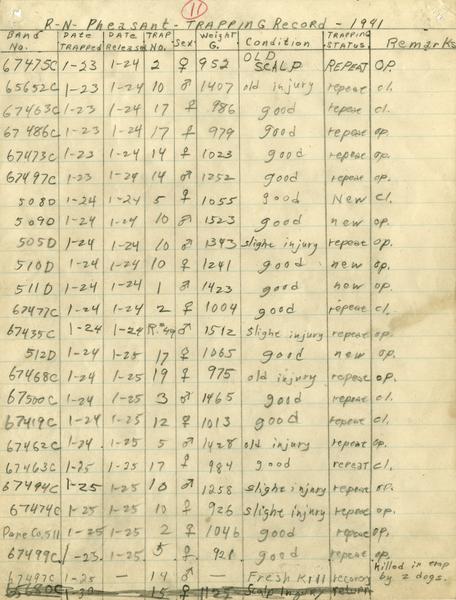 11
R-N- Pheasant - TRAPPING RECORD - 1941
Band No. Date Trapped Date Released TRAP No. Sex Weight G. Condition TRAPPING STATUS. Remarks
67475C 1-23 1-24 2 ♀ 952 OLD SCALP REPEAT OP.
65652C 1-23 1-24 10 ♂ 1407 old injury repeat cl.
67463C 1-23 1-24 17 ♀ 986 good repeat cl.
67486C 1-23 1-24 17 ♀ 979 good repeat op.
67473C 1-23 1-24 14 ♀ 1023 good repeat op.
67497C 1-23 1-24 14 ♂ 1252 good repeat op.
508D 1-24 1-24 5 ♀ 1055 good New cl.
509D 1-24 1-24 10 ♂ 1523 good new op.
505D 1-24 1-24 10 ♂ 1343 slight injury repeat op.
510D 1-24 1-24 10 ♀ 1241 good new op.
511D 1-24 1-24 1 ♂ 1423 good new op.
67477C 1-24 1-24 2 ♀ 1004 good repeat cl.
67435C 1-24 1-24 R.#49 ♂ 1512 slight injury repeat op.
512D 1-24 1-25 17 ♀ 1065 good new op.
67468C 1-24 1-25 19 ♀ 975 old injury repeat op.
67500C 1-24 1-25 3 ♂ 1465 good repeat cl.
67419C 1-24 1-25 12 ♀ 1013 good repeat cl.
67462C 1-24 1-25 5 ♂ 1428 old injury repeat op.
67463C 1-25 1-25 17 ♀ 984 good repeat cl.
67494C 1-25 1-25 10 ♂ 1258 slight injury repeat op.
67474C 1-25 1-25 10 ♀ 926 slight injury repeat op.
Dane Co. 511 1-25 1-25 2 ♀ 1046 good repeat op.
67499C 1-23 1-25 5 ♀ 921 good repeat op.
67497C 1-25 — 14 ♂ — Fresh Kill recovery killed in trap by 2 dogs.
65680C 1-30 15 ♀ 1125 Scalp Injury return